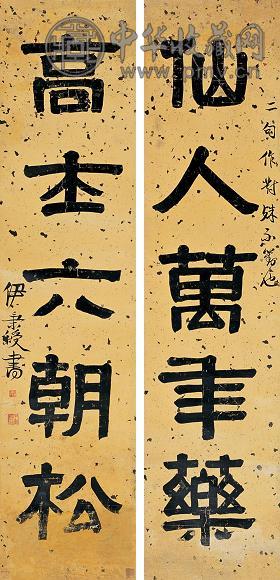 仙人萬年藥
二句作對殊不惡也
高士六朝松
伊秉綬書
中华收藏网